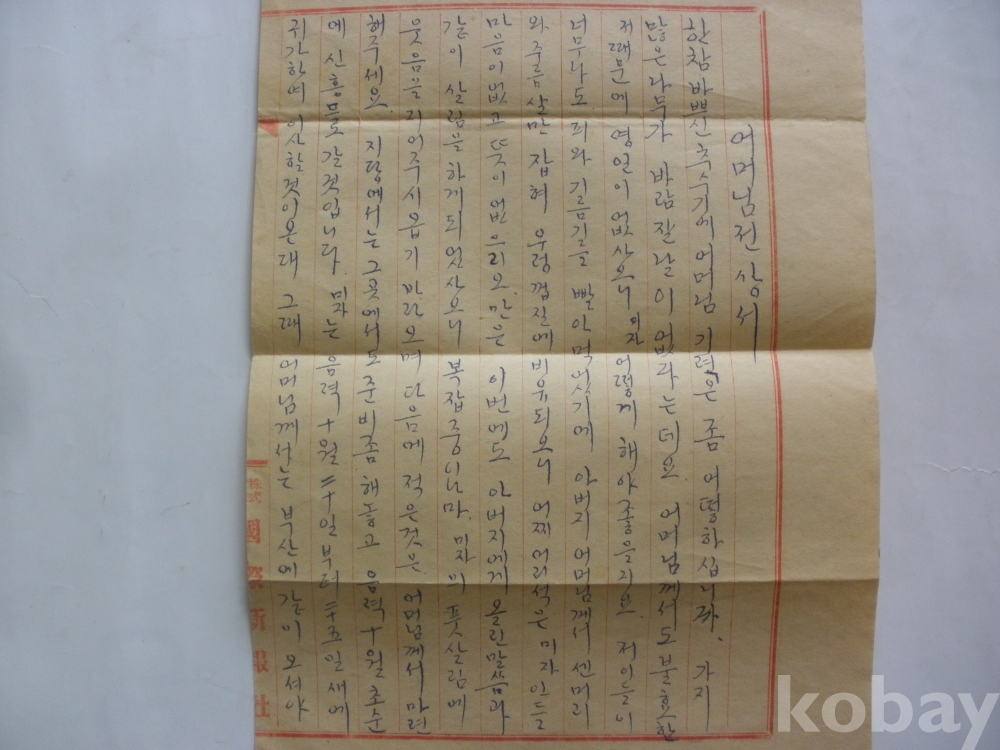 어머님 전 상서
한참 바쁘신 추수기에 어머님 기력은 좀 어떻하십니까. 가지
많은 나무가 바람 잘 날이 없다는데요 어머님께서도 불효한
저 때문에 영일이 없사오니 미자 어떻게 해야 좋을지요. 저이들이
너무나도 피와 기름기를 빨아 먹었기에 아버지 어머님께서 센머리
와 주름살만 잡혀 우렁 껍질에 비유되오니 어찌 어리석은 미자인들
마음이 없고 뜻이 없으리오만은 이번에도 아버지에게 올린 말씀과
같이 살림을 하게 되었사오니 복잡중입니다. 미자의 풋살림에
웃음을 리어 주시옵기 바라오며 다음에 적은것은 어머님께서 마련
해 주세요. 지당에서는 그곳에서도 준비좀 해놓고 음력 十월 초순
에 신흥으로 갈것입니다. 미자는 음력 十월 二十일부터 二十五일 새에
귀가하여 이사할것이온대 그때 어머님께서는 부산에 같이 오셔야
株式 國際新報社
kobay